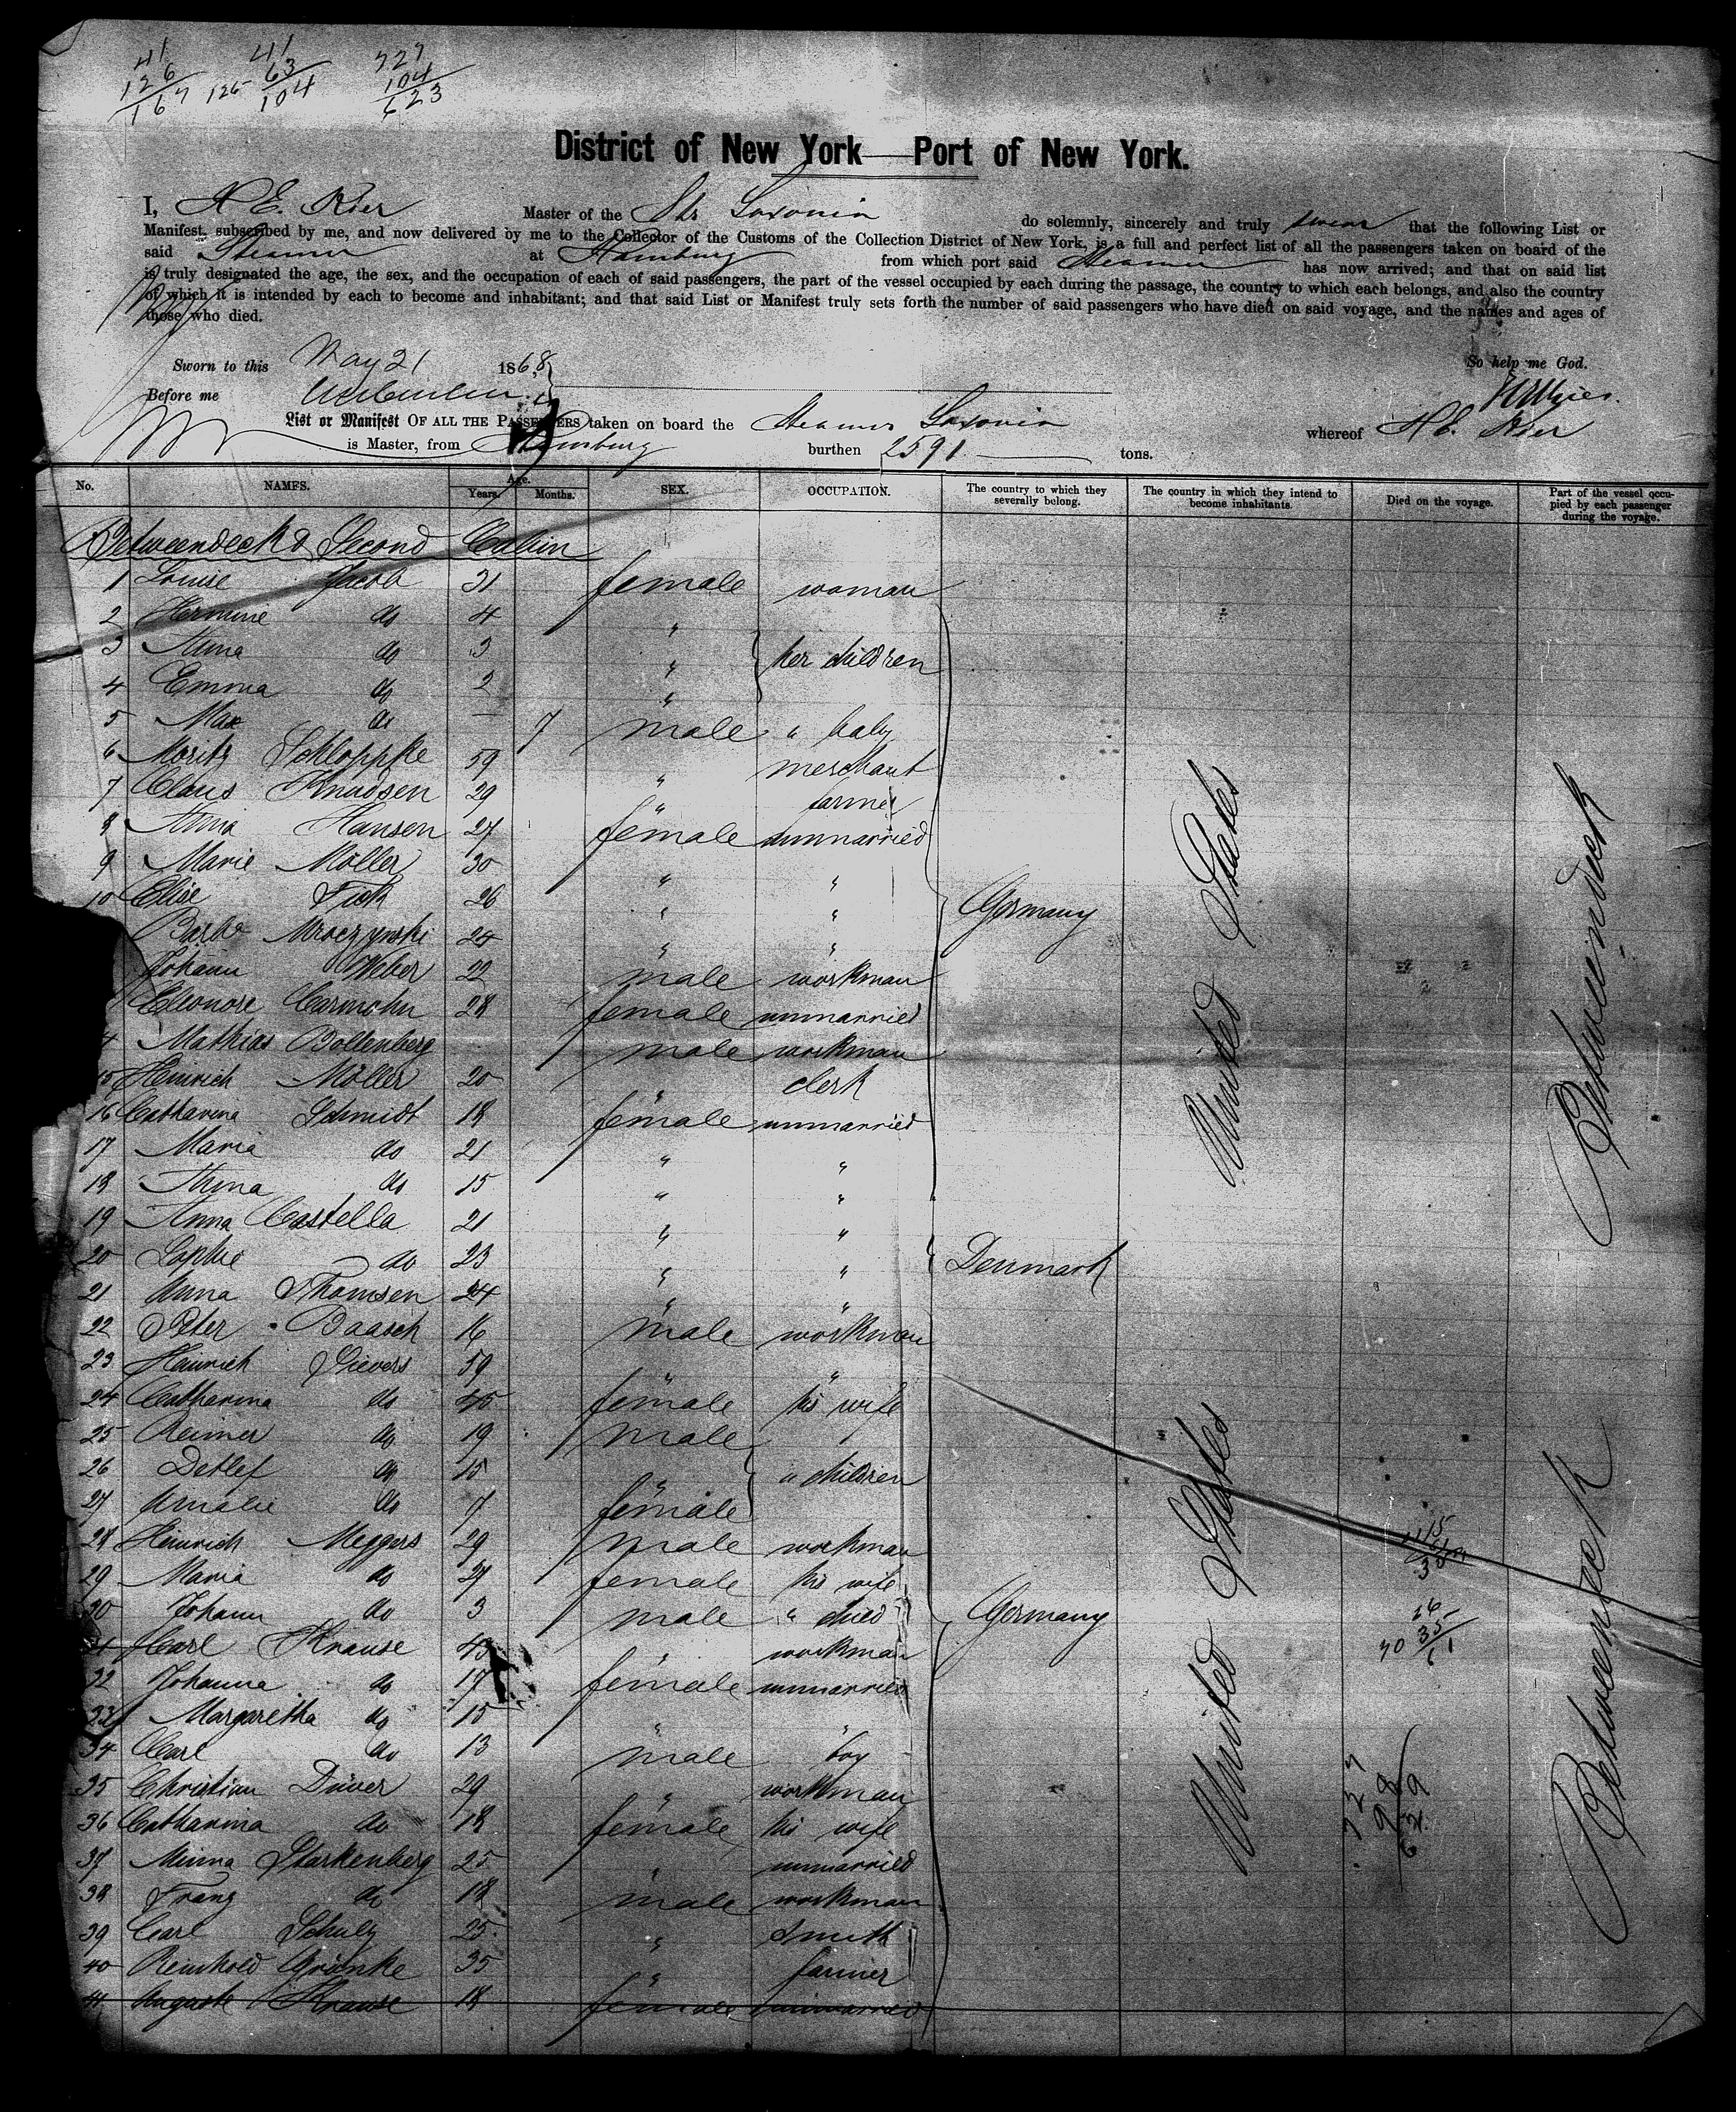 41 41 727
126 63 104
167 125 104 623
District of New York—Port of New York.
I, H. E. Kier Master of the Str Saxonia do solemnly, sincerely and truly swear that the following List or
Manifest, subscribed by me, and now delivered by me to the Collector of the Customs of the Collection District of New York, is a full and perfect list of all the passengers taken on board of the
said Steamer at Hamburg from which port said Steamer has now arrived; and that on said list
is truly designated the age, the sex, and the occupation of each of said passengers, the part of the vessel occupied by each during the passage, the country to which each belongs, and also the country
of which it is intended by each to become and inhabitant; and that said List or Manifest truly sets forth the number of said passengers who have died on said voyage, and the names and ages of
those who died.
Sworn to this May 21 1868, So help me God.
Before me
List or Manifest OF ALL THE PASSENGERS taken on board the Steamer Saxonia whereof H. E. Kier
is Master, from Hamburg burthen 2591 tons.
No. NAMES. Age. Years. Months. SEX. OCCUPATION. The country to which they severally belong. The country in which they intend to become inhabitants. Died on the voyage. Part of the vessel occupied by each passenger during the voyage.
Betweendeck & Second Cabin
1 Louise Jacob 31 female woman
2 Hermine do 4 "
3 Anna do 3 " her children
4 Emma do 2 "
5 Max do — 7 male " baby
6 Moritz Schloppke 59 " merchant
7 Claus Knudsen 29 " farmer
8 Anna Hansen 27 female unmarried
9 Marie Möller 30 " "
10 Elise Fick 26 " " Germany United States Betweendeck
Barba Mroczynski 24 " "
Johann Weber 22 male workman
Eleonore Carmohn 28 female unmarried
4 Mathias Bollenberg male workman
15 Heinrich Möller 20 " clerk
16 Catharina Schmidt 18 female unmarried
17 Maria do 21 " "
18 Anna do 15 " "
19 Anna Castella 21 " "
20 Sophie do 23 " " Denmark
21 Anna Thomsen 24 " "
22 Peter Baasch 16 male workman
23 Heinrich Sievers 59 " "
24 Catharina do 45 female his wife
25 Reimer do 19 male
26 Detlef do 15 " " children
27 Amalie do 7 female
28 Heinrich Meggers 29 male workman
29 Maria do 27 female his wife
30 Johann do 3 male " child Germany United States Betweendeck
31 Carl Krause 43 " workman
32 Johanna do 17 female unmarried
33 Margaretha do 15 " "
34 Carl do 13 male boy
35 Christian Düver 29 " workman
36 Catharina do 18 female his wife
37 Minna Starkenberg 25 " unmarried
38 Franz do 18 male workman
39 Carl Schulz 25 " smith
40 Reinhold Gränke 35 " farmer
41 Auguste Krause 18 female unmarried